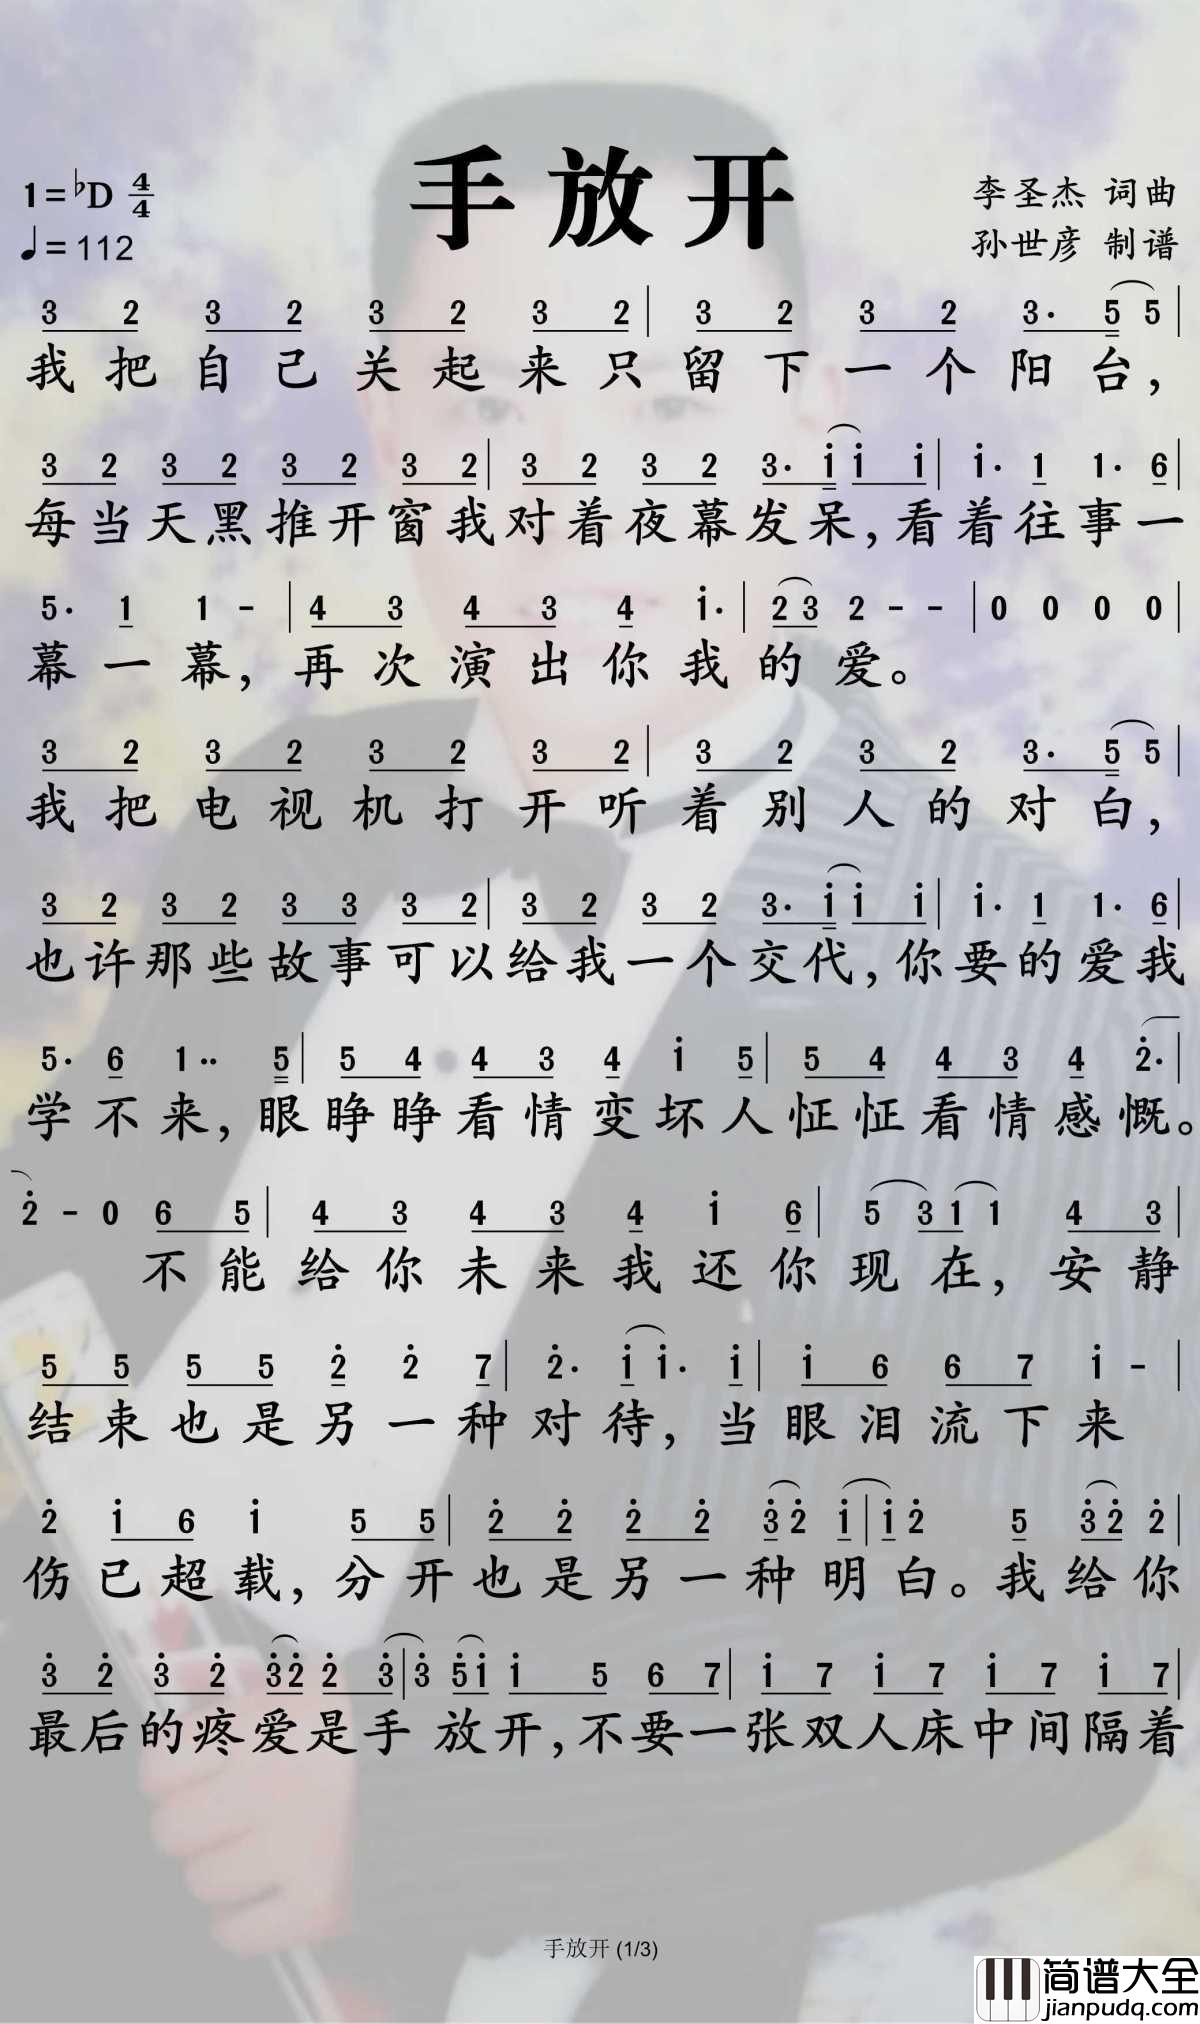 手放开
1=♭D 4/4
♩=112
李圣杰 词曲
孙世彦 制谱
3 2 3 2 3 2 3 2 | 3 2 3 2 3· 5 5 |
我把自己关起来只留下一个阳台，
3 2 3 2 3 2 3 2 | 3 2 3 2 3· i i i | i· 1 1· 6 |
每当天黑推开窗我对着夜幕发呆，看着往事一
5· 1 1 - | 4 3 4 3 4 i· | 2 3 2 - - | 0 0 0 0 |
幕一幕，再次演出你我的爱。
3 2 3 2 3 2 3 2 | 3 2 3 2 3· 5 5 |
我把电视机打开听着别人的对白，
3 2 3 2 3 3 3 2 | 3 2 3 2 3· i i i | i· 1 1· 6 |
也许那些故事可以给我一个交代，你要的爱我
5· 6 1·· 5 | 5 4 4 3 4 i 5 | 5 4 4 3 4 2̇· |
学不来，眼睁睁看情变坏人怔怔看情感慨。
2̇ - 0 6 5 | 4 3 4 3 4 i 6 | 5 3 1 1 4 3 |
不能给你未来我还你现在，安静
5 5 5 5 2̇ 2̇ 7 | 2̇· i i· i | i 6 6 7 i - |
结束也是另一种对待，当眼泪流下来
2̇ i 6 i 5 5 | 2̇ 2̇ 2̇ 2̇ 3̇ 2̇ i | i 2̇ 5 3̇ 2̇ 2̇ |
伤已超载，分开也是另一种明白。我给你
3̇ 2̇ 3̇ 2̇ 3̇ 2̇ 2̇ 3̇ | 3̇ 5̇ i i 5 6 7 | i 7 i 7 i 7 i 7 |
最后的疼爱是手放开，不要一张双人床中间隔着
手放开 (1/3)
简谱大全
jianpudq.com